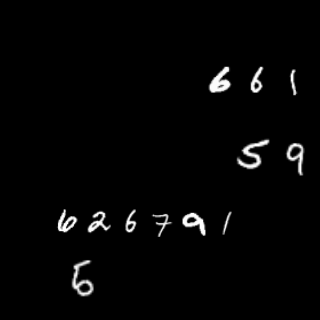 661
59
626791
5